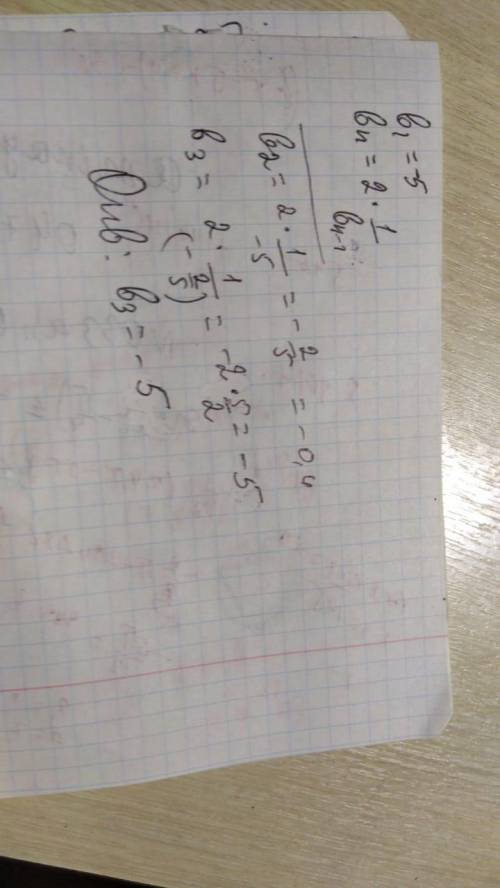 b₁ = -5
bₙ = 2 · 1/bₙ₋₁
b₂ = 2 · 1/-5 = - 2/5 = -0,4
b₃ = 2 · 1/(- 2/5) = -2 · 5/2 = -5
Отв: b₃ = -5